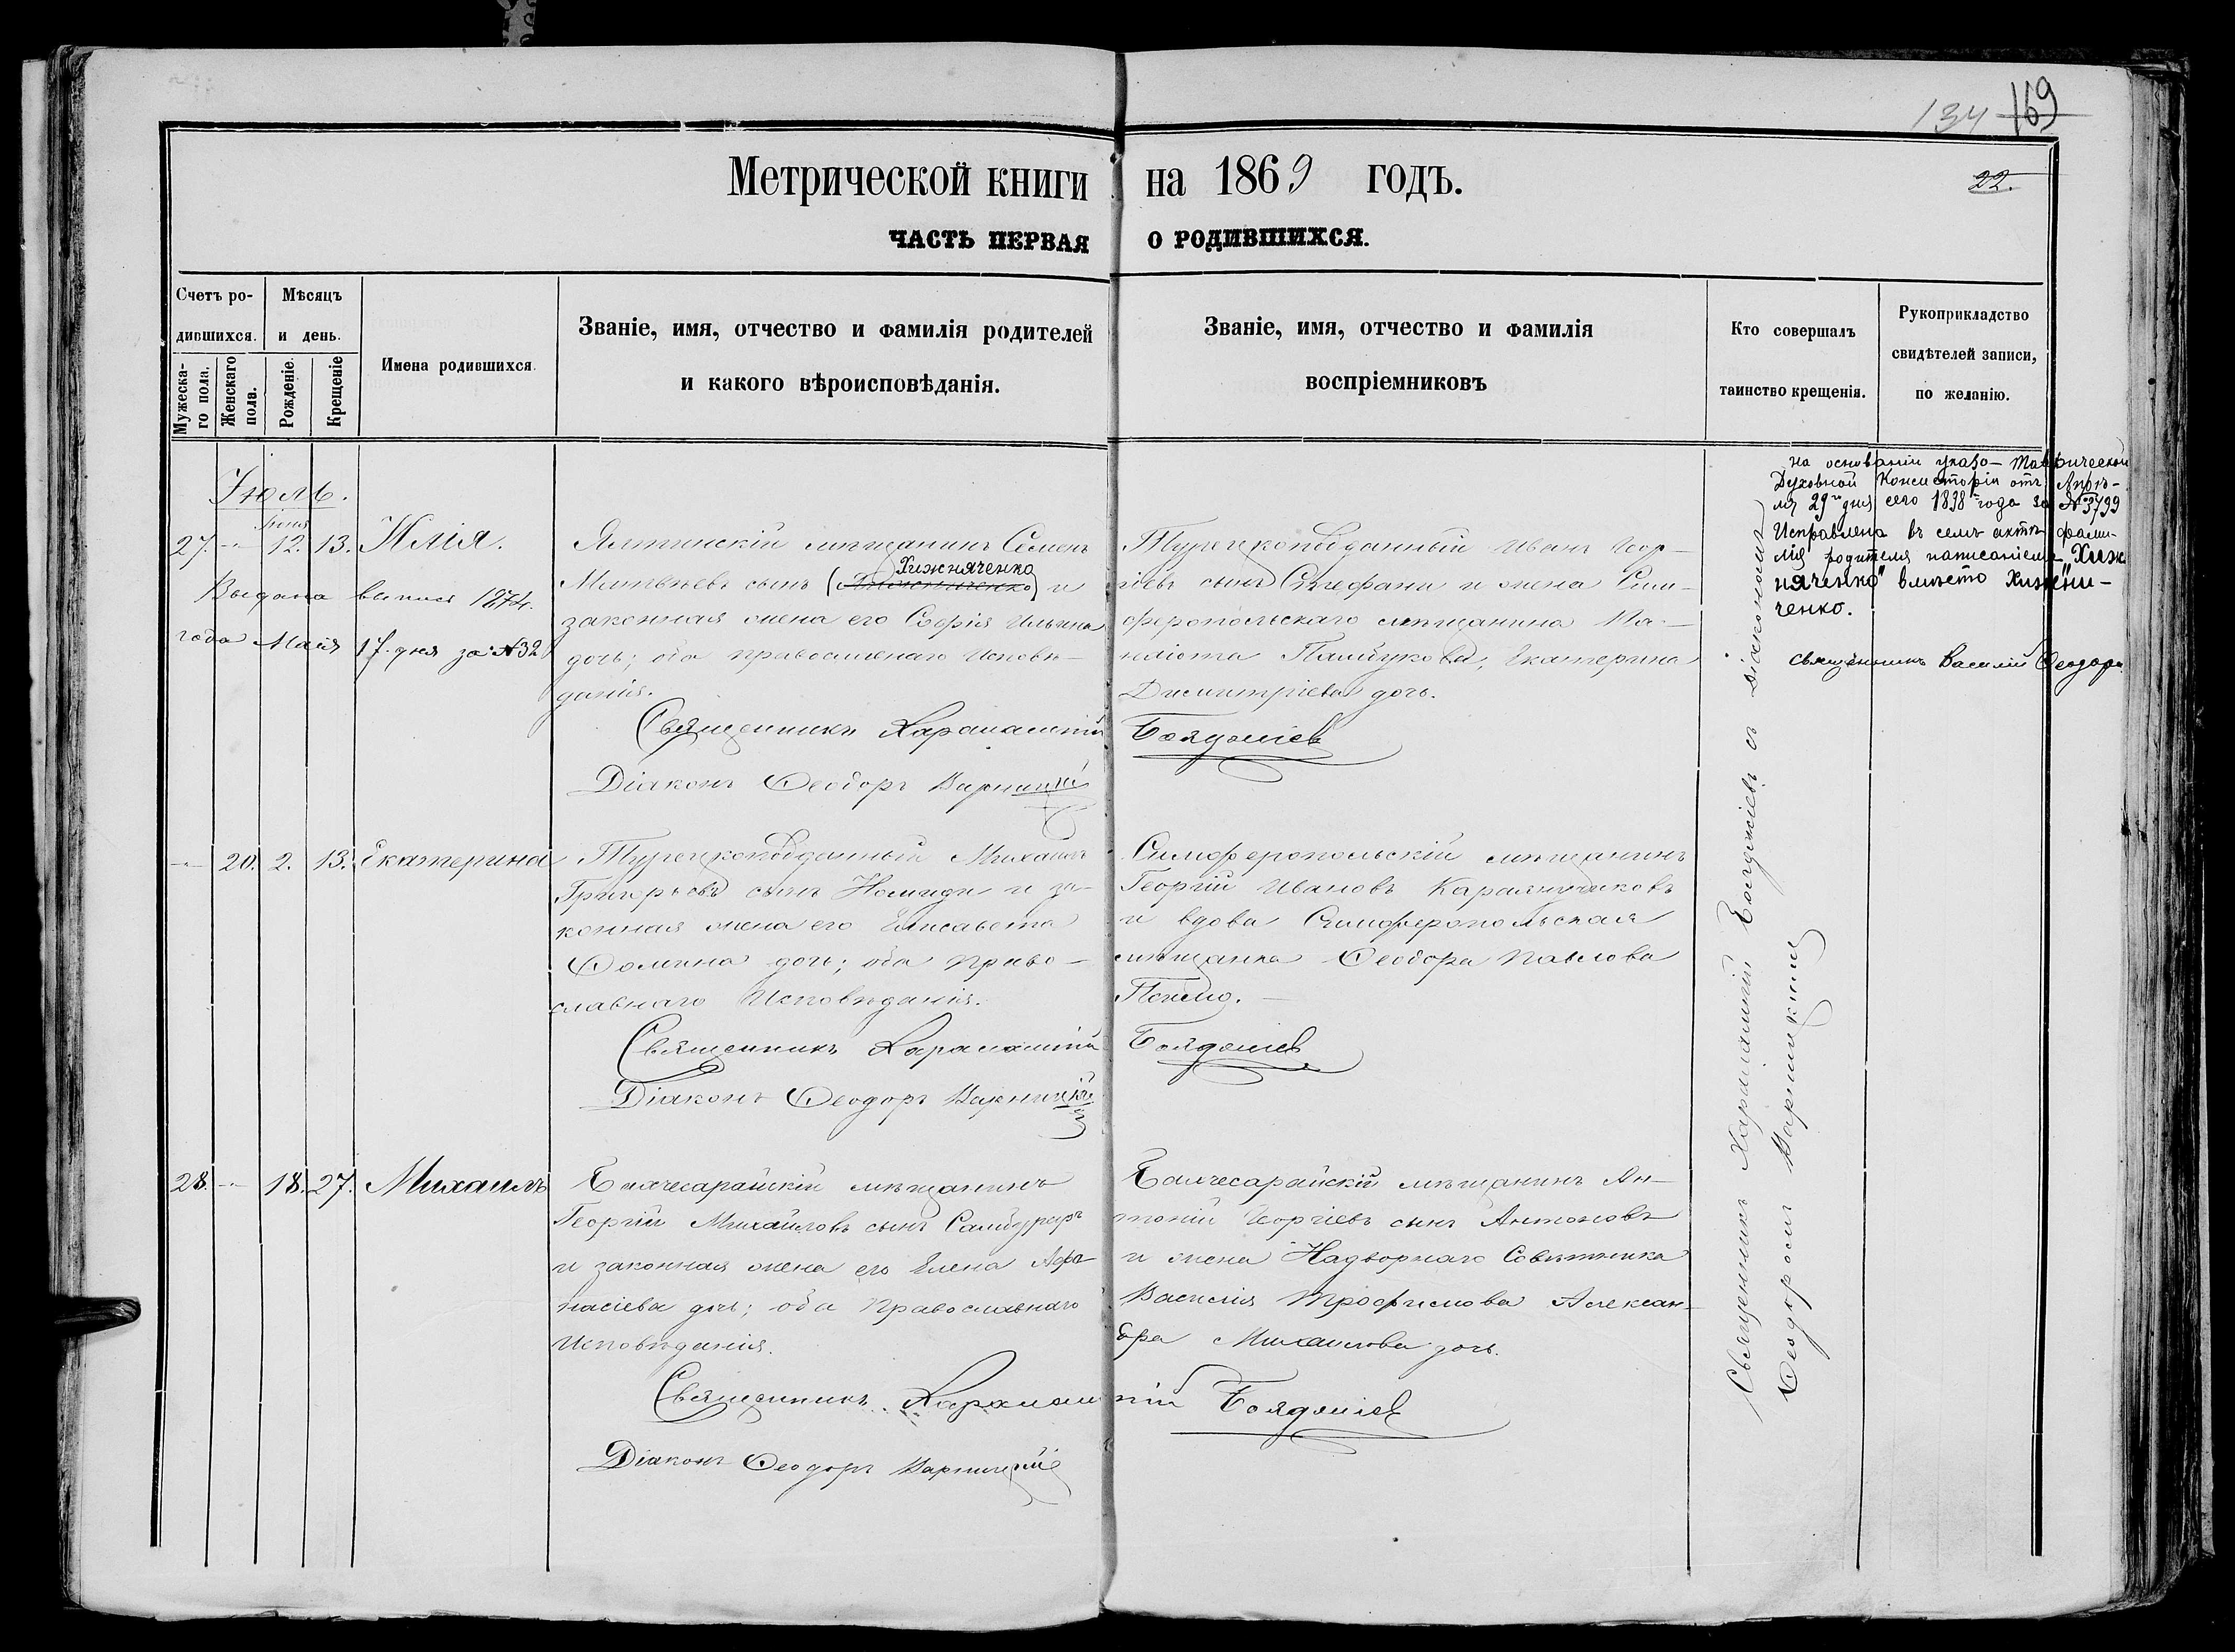 134 169
Метрической книги на 1869 годъ.
22.
ЧАСТЬ ПЕРВАЯ О РОДИВШИХСЯ.
Счетъ ро-
дившихся.
Мужеска-
го пола.
Женскаго
пола.
Мѣсяцъ
и день.
Рожденіе.
Крещеніе
Имена родившихся.
Званіе, имя, отчество и фамилія родителей
и какого вѣроисповѣданія.
Званіе, имя, отчество и фамилія
воспріемниковъ
Кто совершалъ
таинство крещенія.
Рукоприкладство
свидѣтелей записи,
по желанію.
Іюль.
27. 12. 13. Илія.
Выдана выпись 1874.
года Маія 17. дня за № 32
Ялтинскій мѣщанинъ Семенъ
Хижняченко
Матвѣевъ сынъ ( ) и
законная жена его Софія Ильина
дочь; оба православнаго Исповѣ-
данія.
Священникъ Харалампій Болдожіевъ
Діаконъ Ѳеодоръ Варницкій
Турецкоподданный Иванъ Геор-
гіевъ сынъ Стефани и жена Сим-
феропольскаго мѣщанина
Екатерина
Димитріева дочь.
на основаніи указа Таврической
Духовной Консисторіи отъ Апрѣ-
ля 29го дня сего 1898 года за № 3799
Исправлена въ семъ актѣ фами-
лія родителя написаніемъ „Хиж
няченко" вмѣсто Хижни-
ченко.
Священникъ Василій Ѳеодоро
20. 2. 13. Екатерина
Турецкоподданный Михаилъ
Григорьевъ сынъ и за-
конная жена его Елисавета
Ѳомина дочь; оба Право-
славнаго Исповѣданія.
Священникъ Харалампій Болдожіевъ
Діаконъ Ѳеодоръ Варницкій
Симферопольскій мѣщанинъ
Георгій Ивановъ
и вдова Симферопольская
мѣщанка Ѳеодора Павлова
28. 18. 27. Михаилъ
Бахчесарайскій мѣщанинъ
Георгій Михайловъ сынъ
и законная жена его Елена Афа-
насіева дочь; оба Православнаго
Исповѣданія.
Священникъ Харалампій Болдожіевъ
Діаконъ Ѳеодоръ Варницкій
Бахчесарайскій мѣщанинъ Ан-
тоній Георгіевъ сынъ Антоновъ
и жена Надворнаго Совѣтника
Василія Трофимова Алексан-
дра Михаилова дочь.
Священникъ Харалампій Болдожіевъ съ діакономъ
Ѳеодоромъ Варницкимъ